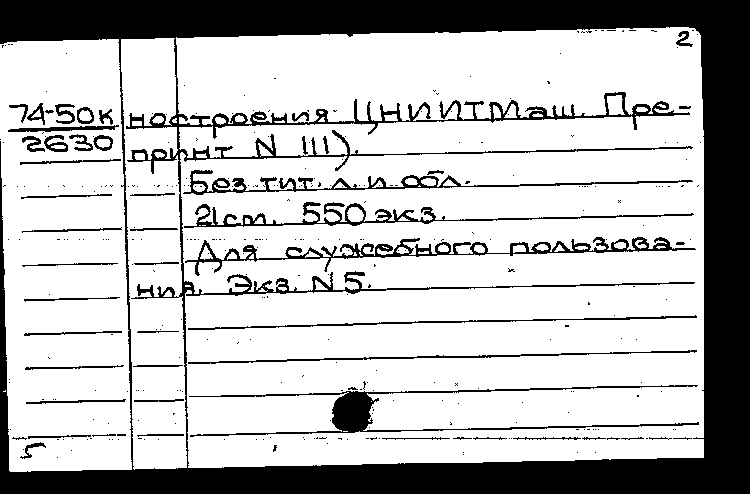 2
74-50к ностроения ЦНИИТМаш. Пре-
2630 принт N 111).
Без тит. л. и обл.
21 см. 550 экз.
Для служебного пользова-
ния. Экз. N 5.
5